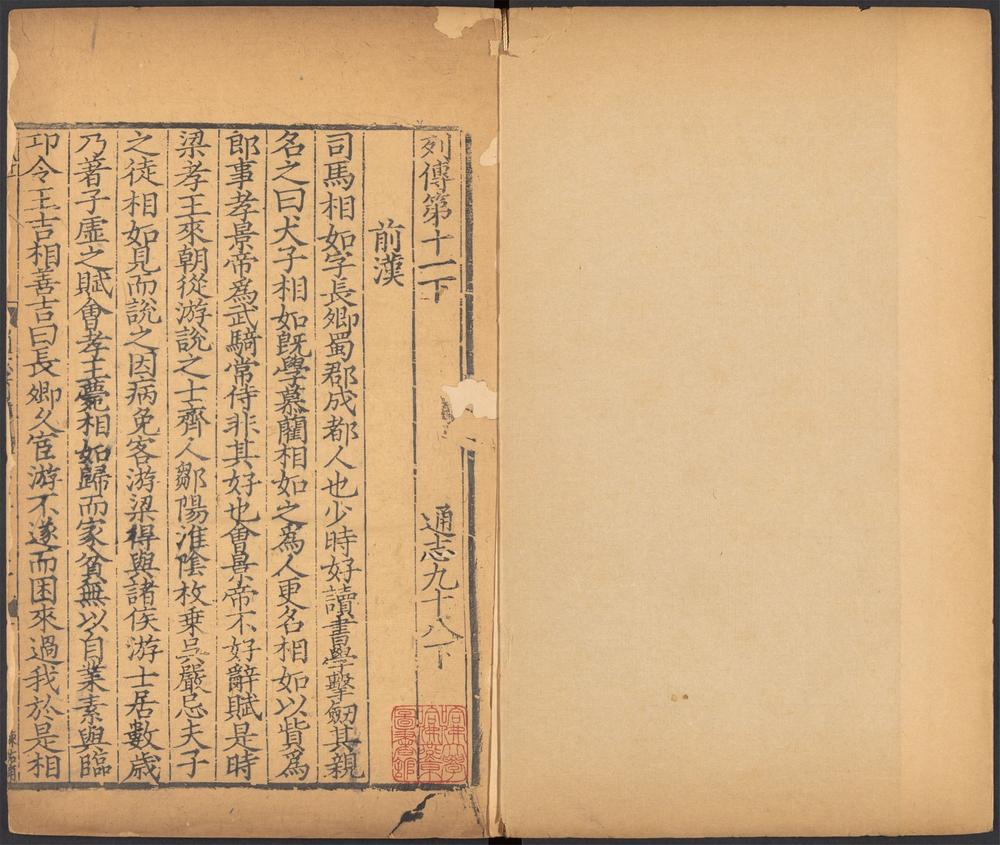 列傳第十一下 通志九十八下
前漢
司馬相如字長卿蜀郡成都人也少時好讀書學擊劒其親
名之曰犬子相如旣學慕藺相如之爲人更名相如以貲爲
郎事孝景帝爲武騎常侍非其好也會景帝不好辭賦是時
梁孝王來朝從游說之士齊人鄒陽淮陰枚乗吳嚴忌夫子
之徒相如見而說之因病免客游梁得與諸侯游士居數歲
乃著子虛之賦會孝王薨相如歸而家貧無以自業素與臨
邛令王吉相善吉曰長卿久宦游不遂而困來過我於是相
哈佛大學哈佛燕京圖書館